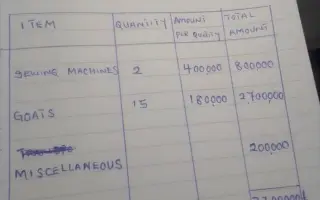 ITEM QUANTITY AMOUNT PER QUATITY TOTAL AMOUNT
SEWING MACHINES 2 400,000 800000
GOATS 15 180,000 2,700,000
MISCELLANEOUS 200,000